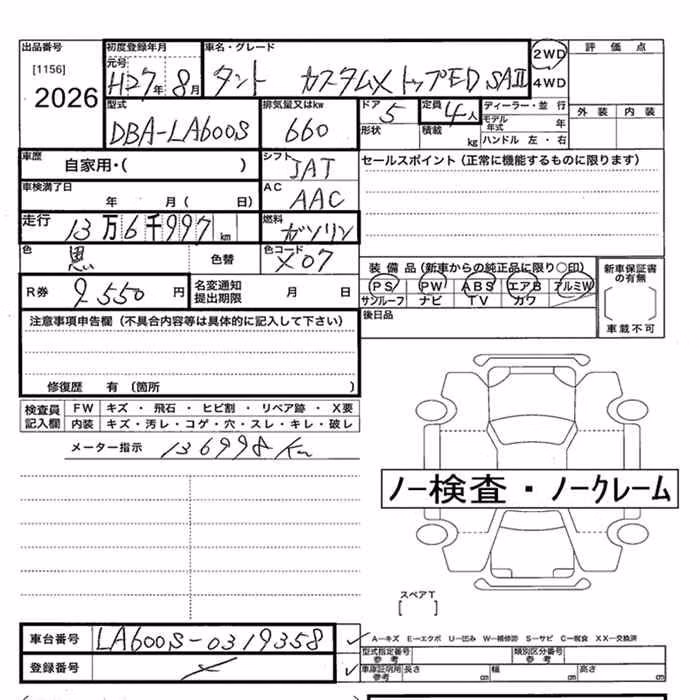 出品番号 初度登録年月 車名・グレード 2WD 評価点
[1156] 元号 H27年 8月 タント カスタムX トップED SAII 4WD
2026
型式 排気量又はkw ドア 定員 ディーラー・並行 外装 内装
DBA-LA600S 660 5 4人 モデル年式 年
形状 積載 kg ハンドル 左・右
車歴 自家用・( ) シフト IAT セールスポイント(正常に機能するものに限ります)
車検満了日 年 月( 日) AC AAC
走行 13万6千997km 燃料 ガソリン
色 黒 色替 色コード X07
装備品(新車からの純正品に限り○印) 新車保証書の有無
R券 9550円 名変通知提出期限 月 日 PS PW ABS エアB アルミW
サンルーフ ナビ TV カワ
注意事項申告欄(不具合内容等は具体的に記入して下さい) 後日品 車載不可
修復歴 有(箇所 )
検査員記入欄 FW キズ・飛石・ヒビ割・リペア跡・X要
内装 キズ・汚レ・コゲ・穴・スレ・キレ・破レ
メーター指示 136998Km
ノー検査・ノークレーム
スペアT
[ ]
車台番号 LA600S-0319358 A−キズ E−エクボ U−凹み W−補修跡 S−サビ C−腐食 XX−交換済
型式指定番号 参考 類別区分番号 参考
登録番号 車庫証明用参考 長さ cm 幅 cm 高さ cm